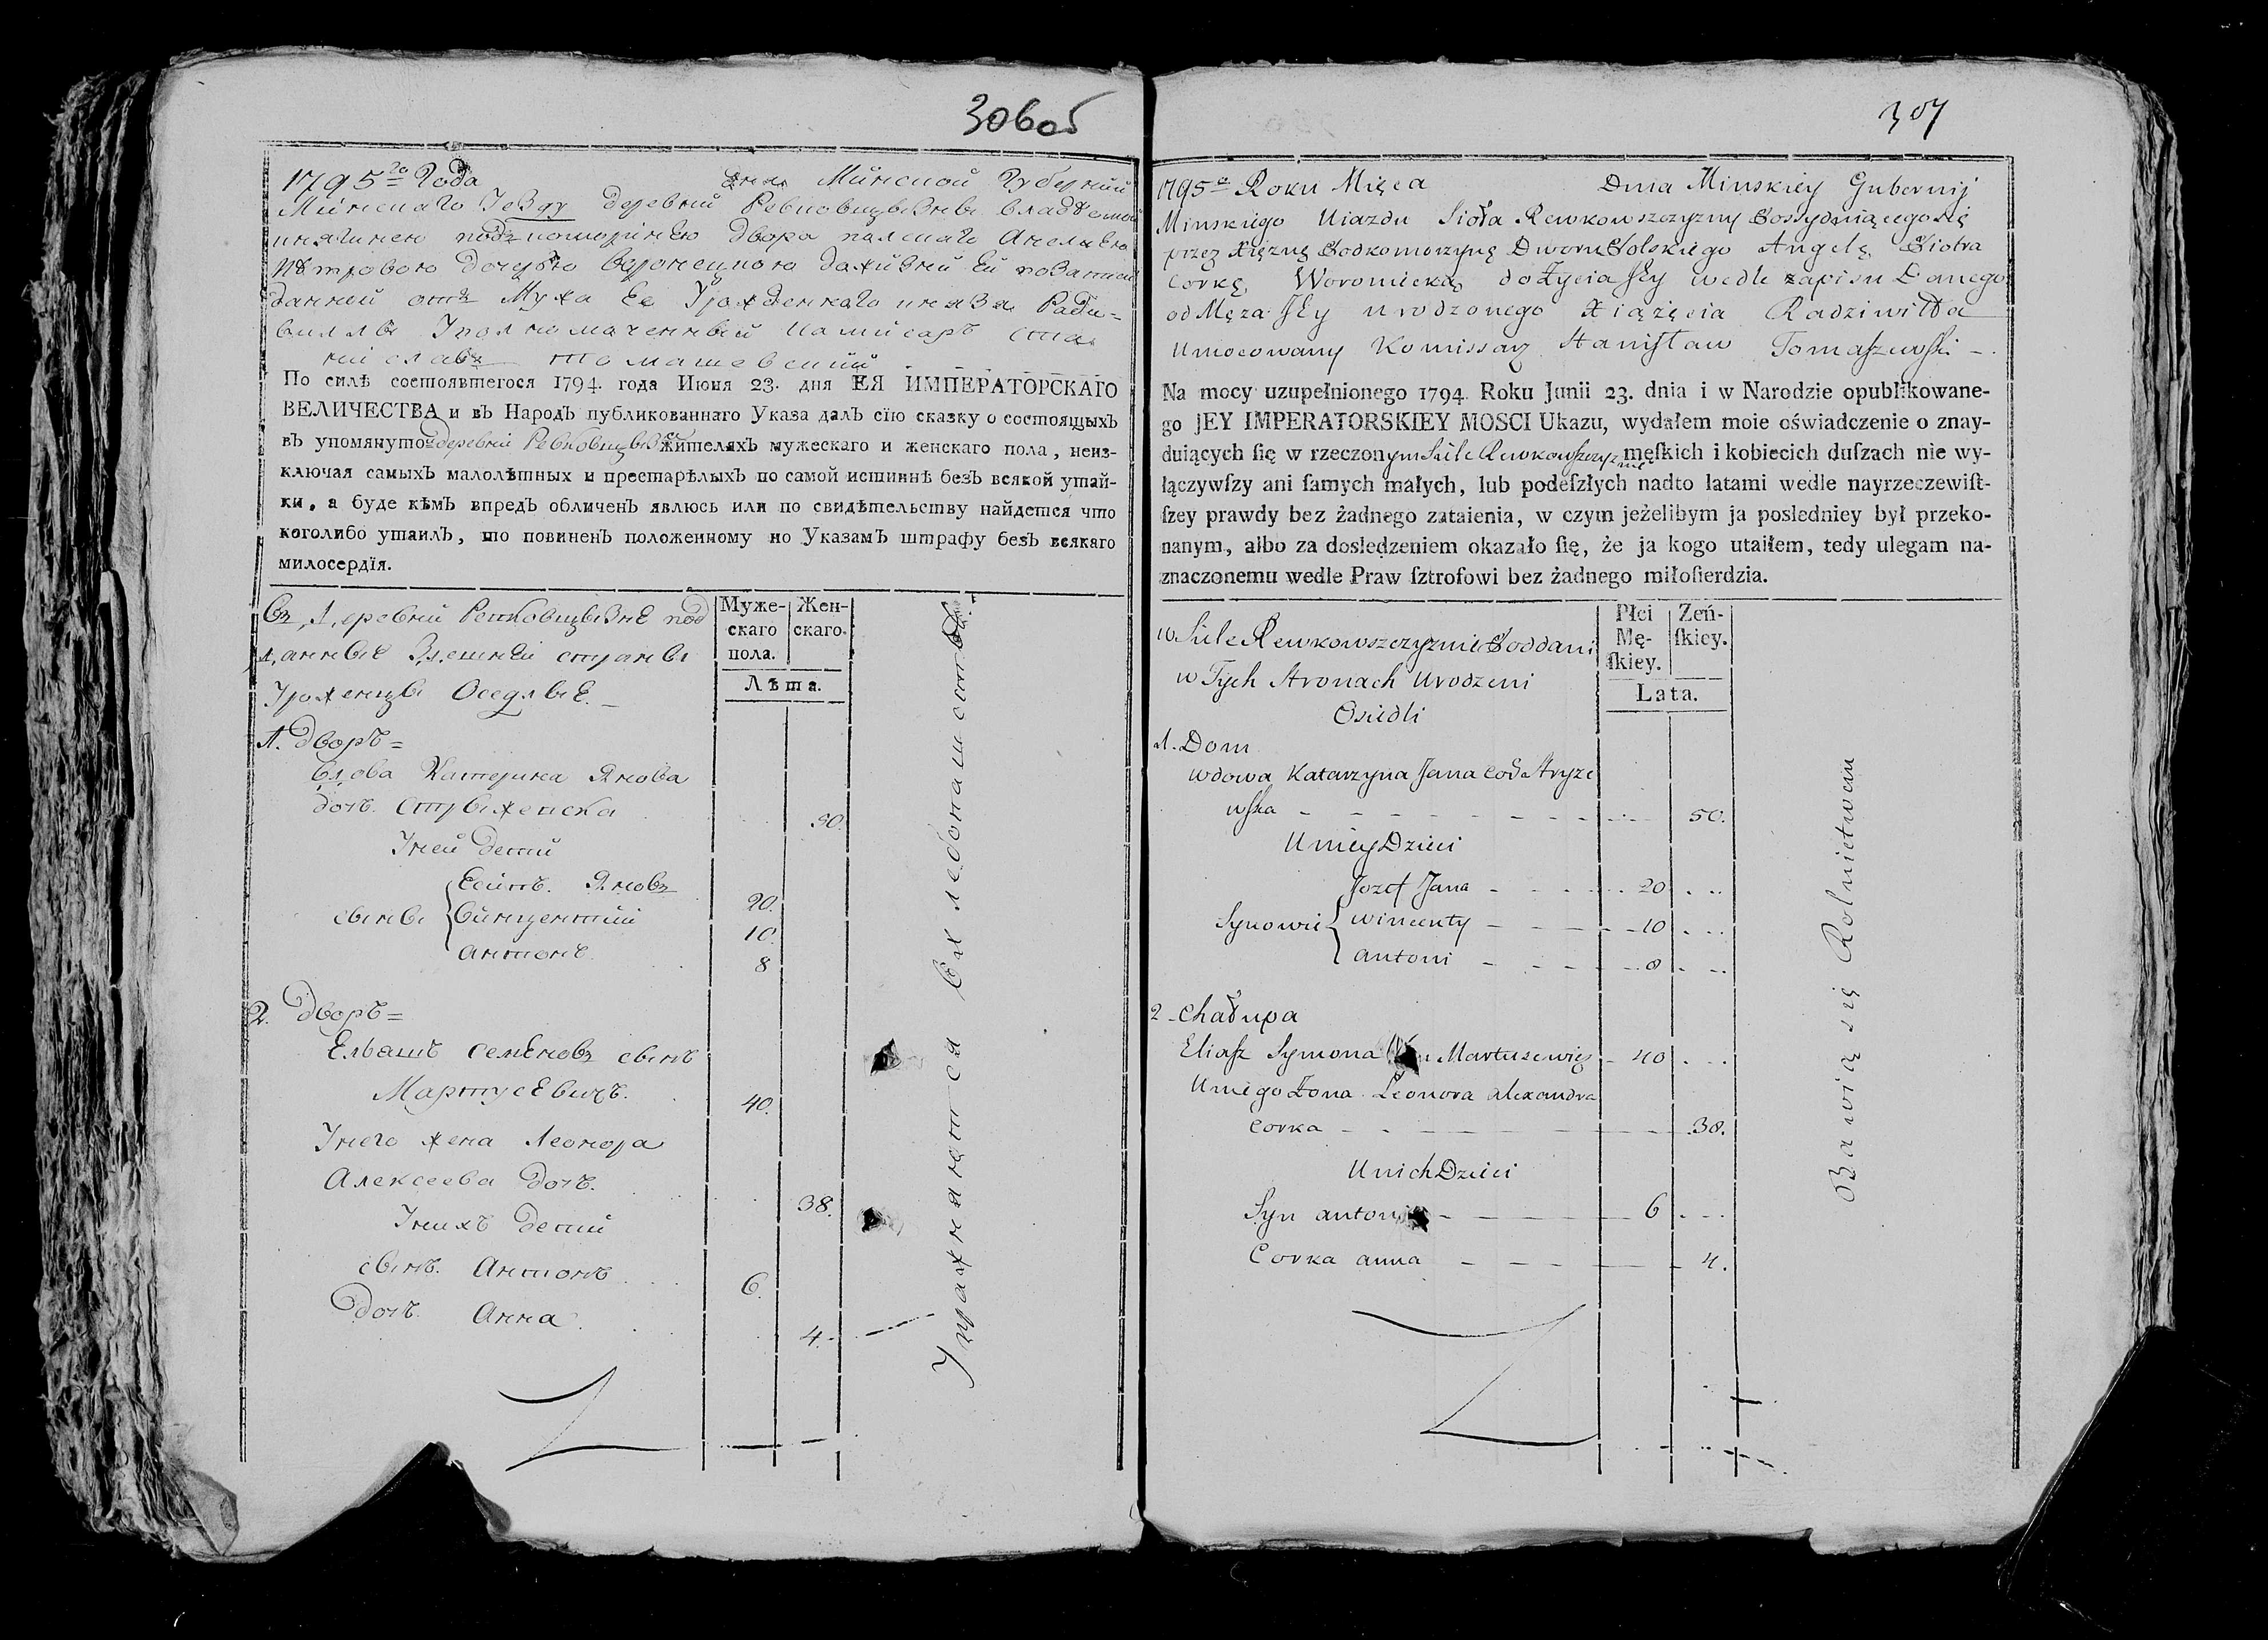 306об
1795го Года дня Минской Губернии
Минскаго Уезду деревни Ревковщизны владѣемой
княгинею подкоморинею двора полскаго Анелиею
Петровою дочерью Воронецкою
данной отъ мужа Ее Урожденнаго князя Ради-
виллы Уполномаченный Камисаръ Ста
ниславъ Томашевский
По силѣ состоявшегося 1794. года Июня 23. дня ЕЯ ИМПЕРАТОРСКАГО
ВЕЛИЧЕСТВА и въ Народъ публикованнаго Указа далъ сїю сказку о состоящыхъ
въ упомянутой деревни Ревковщызне жителяхъ мужескаго и женскаго пола, неиз-
ключая самыхъ малолѣтных и престарѣлыхъ по самой истиннѣ безъ всякой утай-
ки, а буде кѣмъ впредь обличенъ явлюсь или по свидѣтельству найдется что
коголибо утаилъ, то повиненъ положенному по Указамъ штрафу безъ всякаго
милосердїя.
Въ Деревни Ревковщызне под
данные Здешней страны
Уроженцы Оседлые.
Муже-
скаго
пола.
Жен-
скаго.
Лѣта.
1. Дворъ =
Вдова Катерина Янова
дочь. Стрыжевска 50.
Уней дети
сыны
Есипъ. Яновъ 20.
Винцентий 10.
Антонъ 8
2. Дворъ =
Ельашъ Семеновъ сынъ
Мартусевичъ. 40.
Унего жена Леонора
Алексеева дочь. 38.
Унихъ дети
сынъ. Антонъ 6.
Дочь. Анна 4.
Упражняются в хлебопашестве.
307
1795o Roku Mięca Dnia Minskiey Gubernij
Minskiego Uiazdu Sioła Rewkowszczyzny Possyduiącego się
przez Xiężnę Podkomorzynę Dworu Polskiego Angelę Piotra
Corkę Woroniecką do Zycia JEy wedle zapisu Danego
od Męza JEy urodzonego Xiążęcia Radziwiłła
Umocowany Komissarz Stanisław Tomaszewski -.
Na mocy uzupełnionego 1794 Roku Junii 23. dnia i w Narodzie opublikowane-
go JEY IMPERATORSKIEY MOSCI Ukazu, wydałem moie oświadczenie o znay-
duiących ſię w rzeczonym Siele Rewkowszczyznie męſkich i kobiecich duſzach nie wy-
łączywſzy ani ſamych małych, lub podeſzłych nadto latami wedle nayrzeczewiſt-
ſzey prawdy bez żadnego zataienia, w czym jeżelibym ja posledniey był przeko-
nanym, albo za dosledzeniem okazało ſię, że ja kogo utaiłem, tedy ulegam na-
znaczonemu wedle Praw ſztrofowi bez żadnego miłoſierdzia.
w Siele Rewkowszczyznie Poddani
w Tych Stronach Urodzeni
Osiedli
Płci
Mę-
ſkiey.
Zeń-
ſkiey.
Lata.
1. Dom
Wdowa Katarzyna Jana Coł Stryze
wska 50.
U niey Dzieci
Synowie
Jozef Jana 20
Wincenty 10
Antoni 8
2 Chałupa
Eliasz Symona Martusewicz 40
U niego Żona Leonora Alexandra
Corka 38.
U nich Dzieci
Syn Antoni 6
Corka Anna 4.
Bawią się Rolnictwem